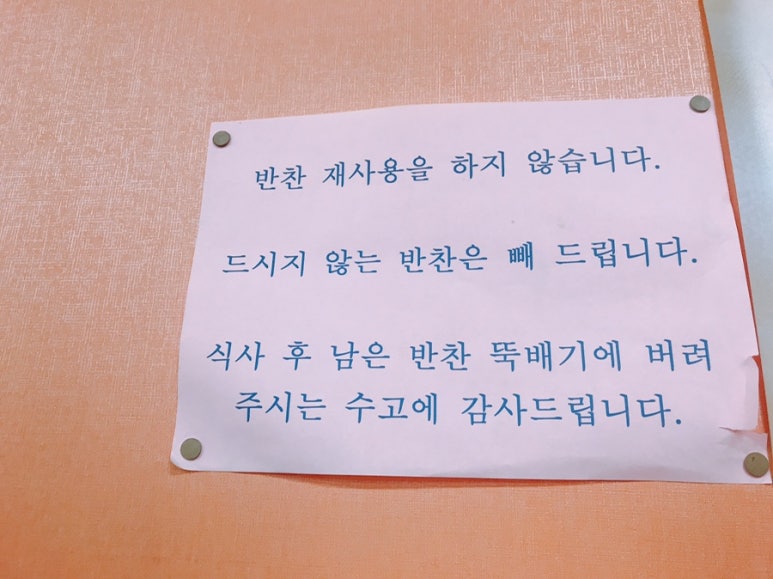 반찬 재사용을 하지 않습니다.
드시지 않는 반찬은 빼 드립니다.
식사 후 남은 반찬 뚝배기에 버려
주시는 수고에 감사드립니다.